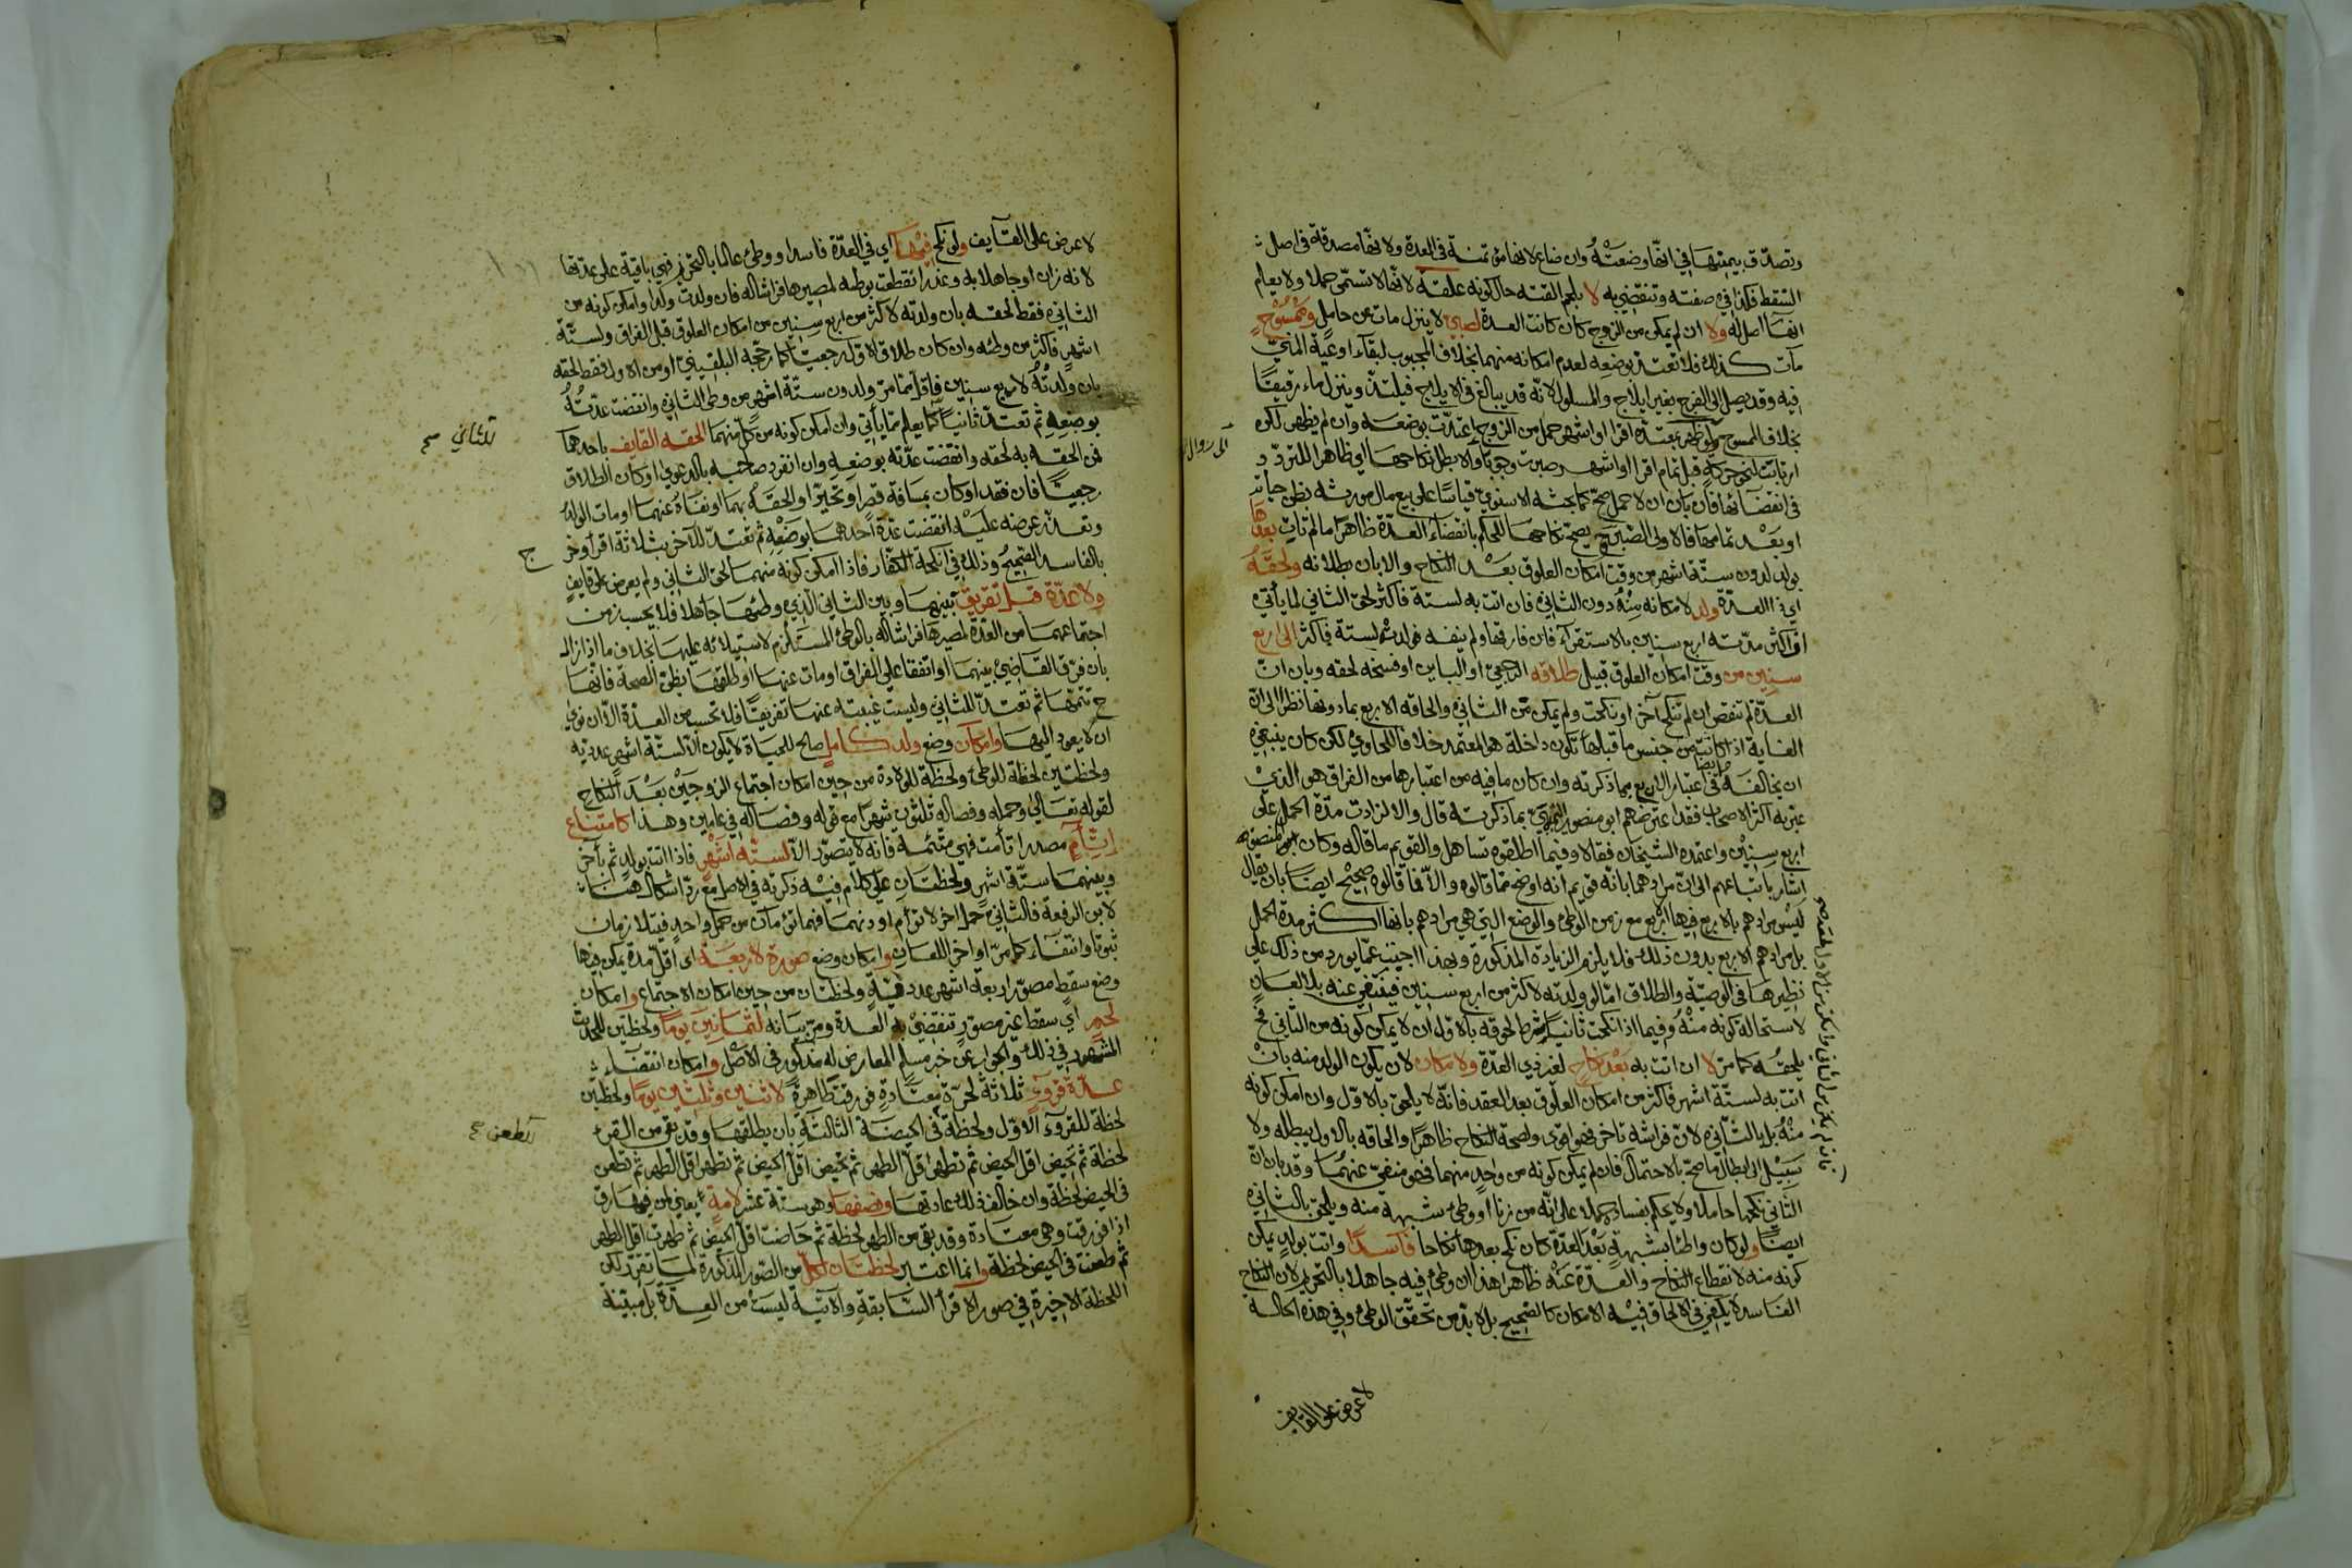 وتصدق بيمينها في انها وضعته وان ضاع لانها مؤتمنة في العدة ولانها مصدقة في اصل
السقط فكذا في صفته وتنقضي به لا بلحم القته حال كونه علقة لانها لا تسمى حملا ولا يعلم
انها اصل له ولا ان لم يمكن من الزوج كان كانت العدة لصبي لا ينزل مات عن حامل وممسوح
مات كذلك فلا تعتد بوضعه لعدم امكانه منهما بخلاف المجبوب لبقاء اوعية المني
فيه وقد يصل الى الفرج بغير ايلاج والمسلول لانه قد يبالغ في الايلاج فيلتذ وينزل ماء رقيقا
بخلاف الممسوح ولو ظهر بمعتدة اقرا او اشهر حمل من الزوج اعتدت بوضعه وان لم يظهر لكن
ارتابت لنحو حركة قبل تمام اقرا او اشهر صبرت وجوبا والا بطل نكاحها اي ظاهرا للتردد
في انقضائها فان بان ان لا حمل صح كما بحثه الاسنوي قياسا على بيع مال مورثه بظن حياته
او بعد تمامها فالاولى الصبر ويصح نكاحها للحكم بانقضاء العدة ظاهرا ما لم تات بعدها
بولد لدون ستة اشهر من وقت امكان العلوق بعد النكاح والا بان بطلانه ولحقه
اي ذا العدة ولد لامكانه منه دون الثاني فان اتت به لستة فاكثر لحق الثاني لما ياتي
اذ اكثر مدته اربع سنين بالاستقراء فان فارقها ولم ينفه فولدت لستة فاكثر الى اربع
سنين من وقت امكان العلوق قبيل طلاقه الرجعي او الباين او فسخه لحقه وبان ان
العدة لم تنقض ان لم تنكح آخر او نكحت ولم يمكن من الثاني والحاقه الاربع بما دونها نظرا الى ان
الغاية اذا كانت من جنس ما قبلها تكون داخلة هو المعتمد خلافا للحاوي لكن كان ينبغي
ان يخالفه في اعتبار الاربع بما ذكرته وان كان ما فيه من اعتبارها من الفراق هو الذي
عبر به اكثر الاصحاب فقد اعترضهم ابو منصور التميمي بما ذكرته قال والا لزادت مدة الحمل على
اربع سنين واعتمده الشيخان فقالا وفيما اطلقوه تساهل والقويم ما قاله وكان ابن المنصور
اشار باتباعهم الى ان مرادهما بانه قويم انه اوضح مما قالوه والا فما قالوه صحيح ايضا بان يقال
ليس مرادهم بالاربع فيها الاربع مع زمن الوطئ والوضع التي هي مرادهم بانها اكثر مدة الحمل
بل مرادهم الاربع بدون ذلك فلا يلزم الزيادة المذكورة وبهذا اجيب عما يورد من ذلك على
نظيرها في الوصية والطلاق اما لو ولدته لاكثر من اربع سنين فينتفي عنه بلا لعان
لاستحالة كونه منه وفيما اذا نكحت ثانيا شرط لحوقه بالاول ان لا يمكن كونه من الثاني فح
يلحقه كما مر لا ان اتت به بعد نكاح لغير ذي العدة ولامكان لان يكون الولد منه بان
اتت به لستة اشهر فاكثر من امكان العلوق بعد العقد فانه لا يلحق بالاول وان امكن كونه
منه بل بالثاني لان فراشه تاخر فهو اقوى ولصحة النكاح ظاهرا والحاقه بالاول يبطله ولا
سبيل الى ابطال ما صح بالاحتمال فان لم يمكن كونه من واحد منهما فهو منفي عنهما وقد بان ان
الثاني نكحها حاملا ولا يحكم بفساده حملا على انه من زنا او وطئ شبهة منه ويلحق بالثاني
ايضا ولو كان واطئا بشبهة بعد العدة كان نكح بعدها نكاحا فاسدا واتت بولد يمكن
كونه منه لانقطاع النكاح والعدة عنه ظاهرا هذا ان وطئ فيه جاهلا بالتحريم لان النكاح
الفاسد لا يكفي في الالحاق فيه الامكان كالصحيح بل لا بد من تحقق الوطئ وفي هذه الحالة
لا عرض على القايف
لا عرض على القايف ولو نكح فيها اي في العدة فاسدا ووطئ عالما بالتحريم فهي باقية على عدتها
لانه زان او جاهلا به وعذر انقطعت بوطئه لمصيرها فراشا له فان ولدت ولدا وامكن كونه من
الثاني فقط لحقه بان ولدته لاكثر من اربع سنين من امكان العلوق قبل الفراق ولستة
اشهر فاكثر من وطئه وان كان طلاق الاول رجعيا كما رجحه البلقيني او من الاول فقط لحقه
بان ولدته لاربع سنين فاقل مما مر ولدون ستة اشهر من وطئ الثاني وانقضت عدته
بوضعه ثم تعتد ثانيا كما يعلم مما ياتي وان امكن كونه من كل منهما الحقه القايف باحدهما
للثاني صح
فمن الحقه به لحقه وانقضت عدته بوضعه وان انفرد صاحبه بالدعوى او كان الطلاق
رجعيا فان فقد او كان بمسافة قصر او تحير او الحقه بهما او نفاه عنهما او مات الولد
وتعذر عرضه عليه انقضت عدة احدهما بوضعه ثم تعتد للآخر بثلاثة اقرا وخرج
بالفاسد الصحيح وذلك في انكحة الكفار فاذا امكن كونه منهما لحق الثاني ولم يعرض على قايف
ولا عدة قبل تفريق بينهما وبين الثاني الذي وطئها جاهلا فلا يحسب زمن
اجتماعهما من العدة لمصيرها فراشا له بالوطئ المستلزم لاستيلائه عليها بخلاف ما اذا زال
بان فرق القاضي بينهما او اتفقا على الفراق او مات عنها او طلقها بظن الصحة فانها
ح تتمها ثم تعتد للثاني وليست غيبته عنها تفريقا فلا تحسب من العدة الا ان نوى
ان لا يعود اليها وامكان وضع ولد كامل صالح للحياة لا يكون الا لستة اشهر عددية
ولحظتين لحظة للوطئ ولحظة للولادة من حين امكان اجتماع الزوجين بعد النكاح
لقوله تعالى وحمله وفصاله ثلثون شهرا مع قوله وفصاله في عامين وهذا كامتناع
اتئام مصدر اتأمت فهي متئمة فانه لا يتصور الا لستة اشهر فاذا اتت بولد ثم بآخر
وبينهما ستة اشهر ولحظتان على كلام فيه ذكرته في الاصل مع رد اشكال هنا
لابن الرفعة فالثاني حمل اخر لا توأم او دونها فهما توأمان من حمل واحد فيتلازمان
ثبوتا وانتفاء كما مر اواخر اللعان وامكان وضع صورة لاربعة اي اقل مدة يمكن فيها
وضع سقط مصور اربعة اشهر عددية ولحظتان من حين امكان الاجتماع وامكان
لحم اي سقط غير مصور تنقضي به العدة ومر بيانه لثمانين يوما ولحظتين للحديث
المشهور في ذلك والجواب عن خبر مسلم المعارض له مذكور في الاصل وامكان انقضاء
عدة قروء ثلاثة لحرة معتادة فورقت طاهرة لاثنين وثلثين يوما ولحظتين
لحظة للقرء الاول ولحظة في الحيضة الثالثة بان يطلقها وقد بقي من القرء
للطعن صح
لحظة ثم تحيض اقل الحيض ثم تطهر اقل الطهر ثم تحيض اقل الحيض ثم تطهر اقل الطهر ثم تطعن
في الحيض لحظة وان خالف ذلك عادتها ونصفها وهو ستة عشر لامة يعني لمن فيها رق
اذا فورقت وهي معتادة وقد بقي من الطهر لحظة ثم حاضت اقل الحيض ثم طهرت اقل الطهر
ثم طعنت في الحيض لحظة وانما اعتبر لحظتان لكل من الصور المذكورة لما تقرر لكن
اللحظة الاخيرة في صور الاقرا السابقة والآتية ليست من العدة بل مبينة